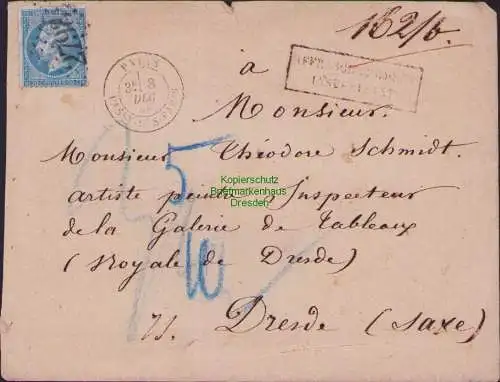 182/6
PARIS
8
DEC
AFFRANCHISSEMENT
INSUFFISANT
à
Monsieur.
Monsieur Théodore Schmidt.
artiste peintre, Inspecteur
de la Galerie de Tableaux
(Royale de Dresde)
Dresde (Saxe)
5
10
Kopierschutz
Briefmarkenhaus
Dresden